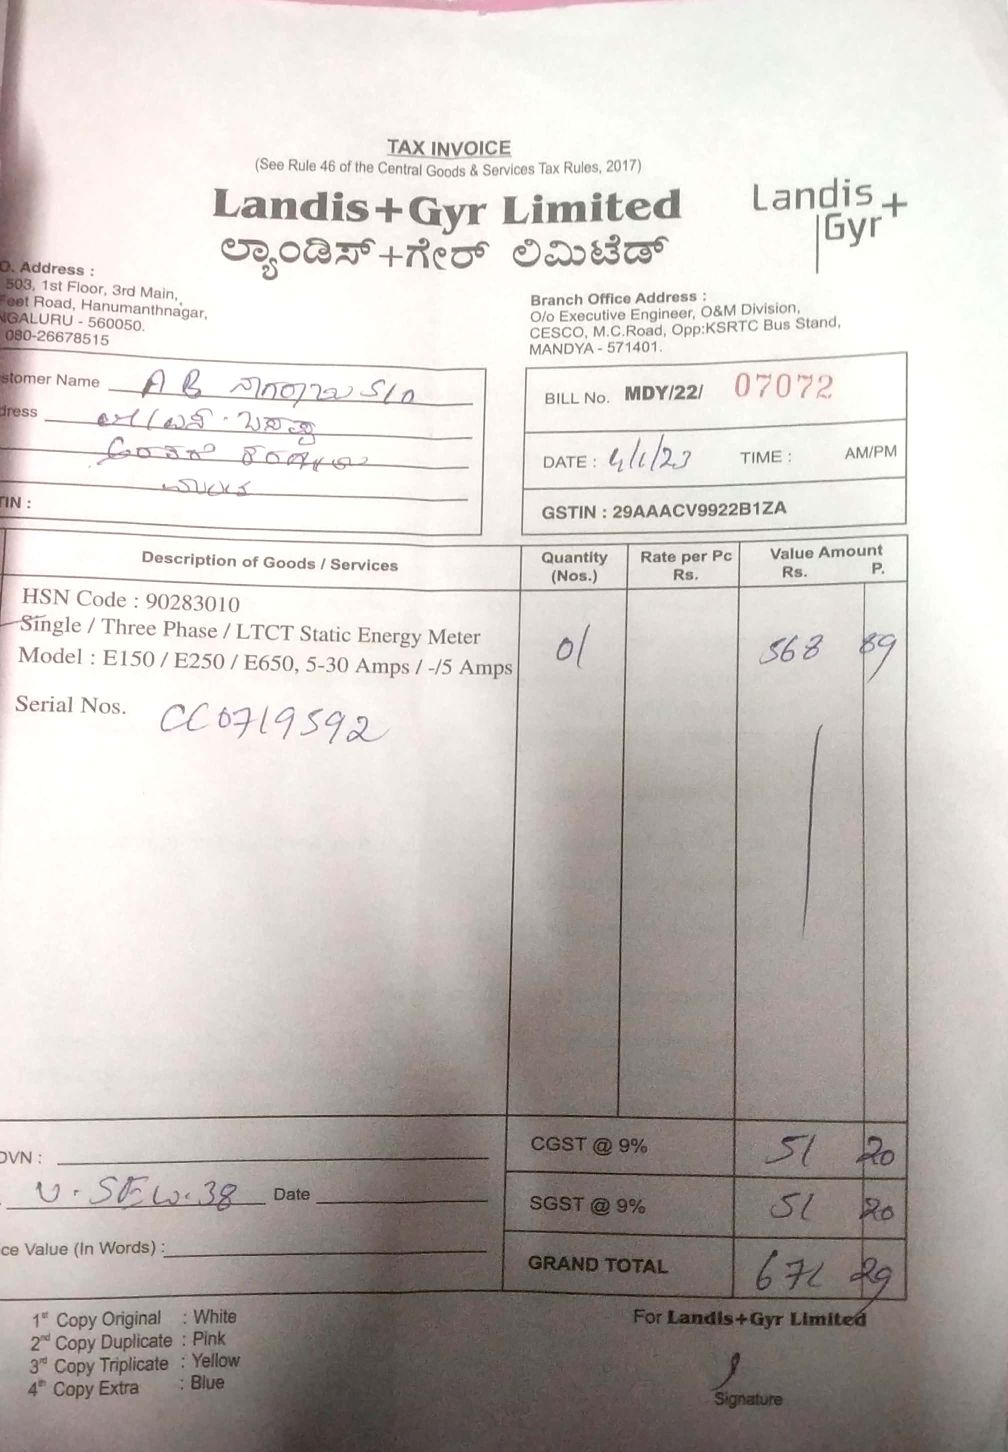 TAX INVOICE
(See Rule 46 of the Central Goods & Services Tax Rules, 2017)
Landis+Gyr Limited
ಲ್ಯಾಂಡಿಸ್+ಗೇರ್ ಲಿಮಿಟೆಡ್
Landis+
Gyr
O. Address :
503, 1st Floor, 3rd Main,
Feet Road, Hanumanthnagar,
NGALURU - 560050.
080-26678515
Branch Office Address :
O/o Executive Engineer, O&M Division,
CESCO, M.C.Road, Opp:KSRTC Bus Stand,
MANDYA - 571401.
stomer Name A B ನಾಗರಾಜು S/o
dress
TIN :
BILL No. MDY/22/ 07072
DATE : 4/1/23 TIME : AM/PM
GSTIN : 29AAACV9922B1ZA
Description of Goods / Services Quantity (Nos.) Rate per Pc Rs. Value Amount Rs. P.
HSN Code : 90283010
Single / Three Phase / LTCT Static Energy Meter 01 568 89
Model : E150 / E250 / E650, 5-30 Amps / -/5 Amps
Serial Nos. CC0719592
OVN :
CGST @ 9% 51 20
Date
SGST @ 9% 51 20
ce Value (In Words) :
GRAND TOTAL 671 29
1st Copy Original : White
2nd Copy Duplicate : Pink
3rd Copy Triplicate : Yellow
4th Copy Extra : Blue
For Landis+Gyr Limited
Signature